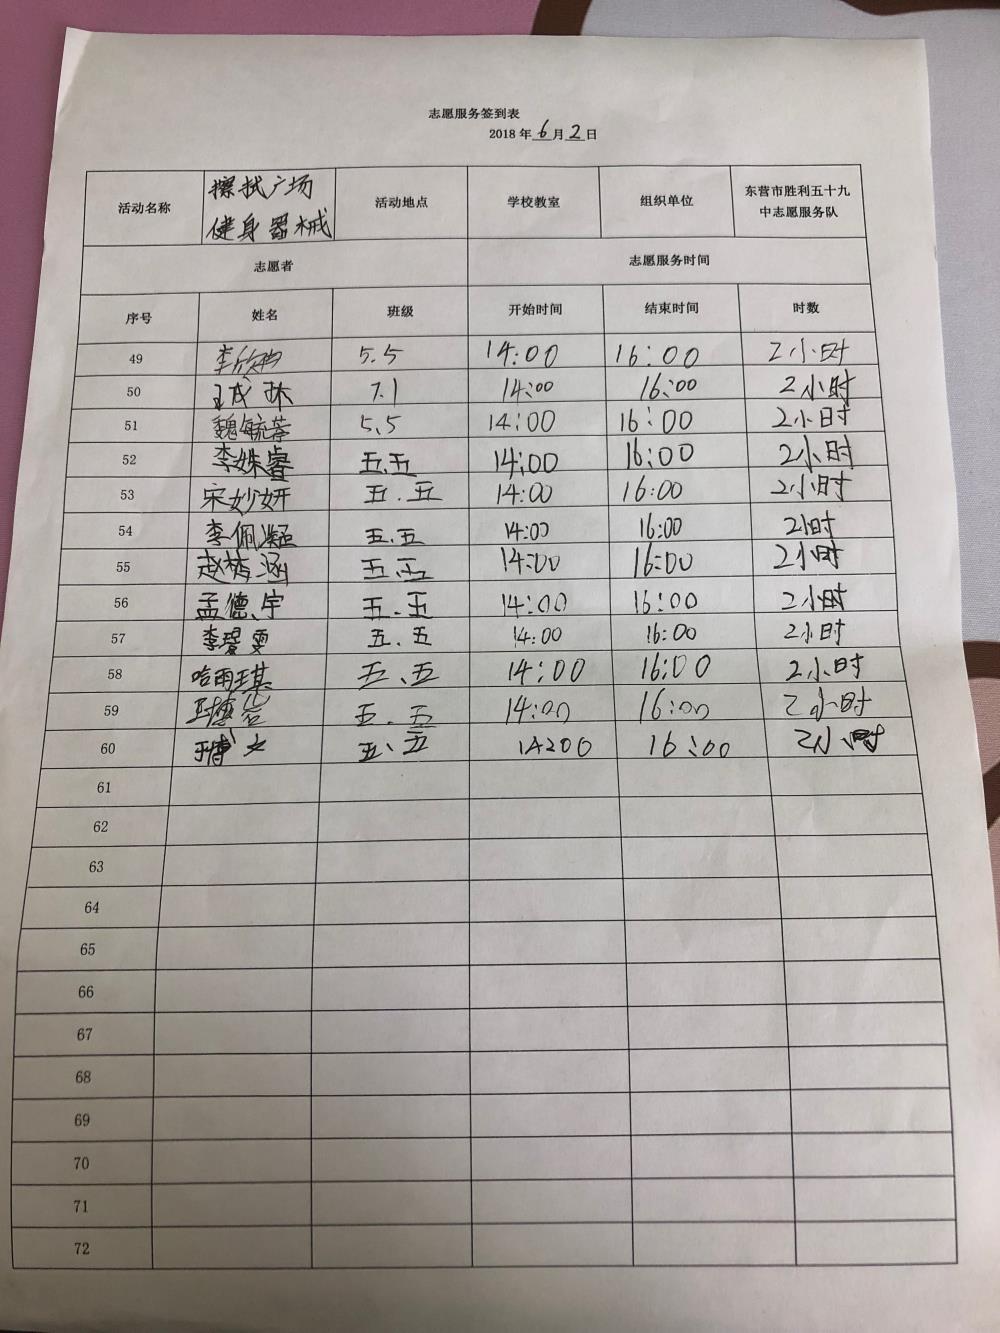 志愿服务签到表
2018 年 6 月 2 日
活动名称 擦拭广场健身器械 活动地点 学校教室 组织单位 东营市胜利五十九中志愿服务队
志愿者 志愿服务时间
序号 姓名 班级 开始时间 结束时间 时数
49 5.5 14:00 16:00 2小时
50 7.1 14:00 16:00 2小时
51 5.5 14:00 16:00 2小时
52 李姝睿 五.五 14:00 16:00 2小时
53 宋妙妍 五.五 14:00 16:00 2小时
54 李佩凝 五.五 14:00 16:00 2小时
55 赵梦涵 五.五 14:00 16:00 2小时
56 孟德宇 五.五 14:00 16:00 2小时
57 五.五 14:00 16:00 2小时
58 哈雨琪 五、五 14:00 16:00 2小时
59 五.五 14:00 16:00 2小时
60 五、五 14200 16:00 2小时
61
62
63
64
65
66
67
68
69
70
71
72